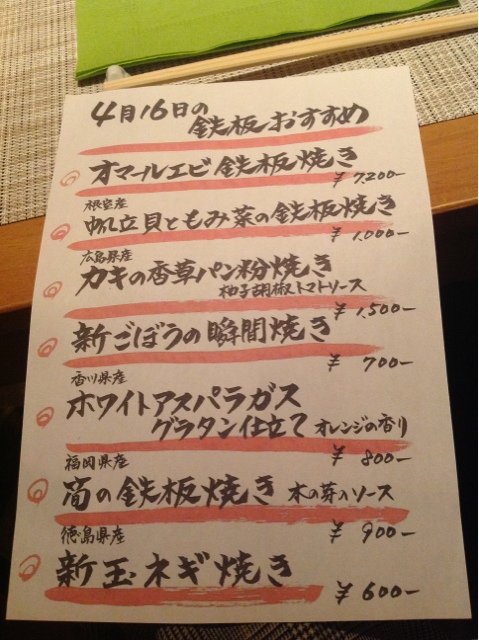 4月16日の
鉄板おすすめ
オマールエビ鉄板焼き
¥7,200-
根室産
帆立貝ともみ菜の鉄板焼き
¥1,000-
広島県産
カキの香草パン粉焼き
柚子胡椒トマトソース
¥1,500-
新ごぼうの瞬間焼き
¥700-
香川県産
ホワイトアスパラガス
グラタン仕立て オレンジの香り
¥800-
福岡県産
筍の鉄板焼き 木の芽入ソース
¥900-
徳島県産
新玉ネギ焼き
¥600-